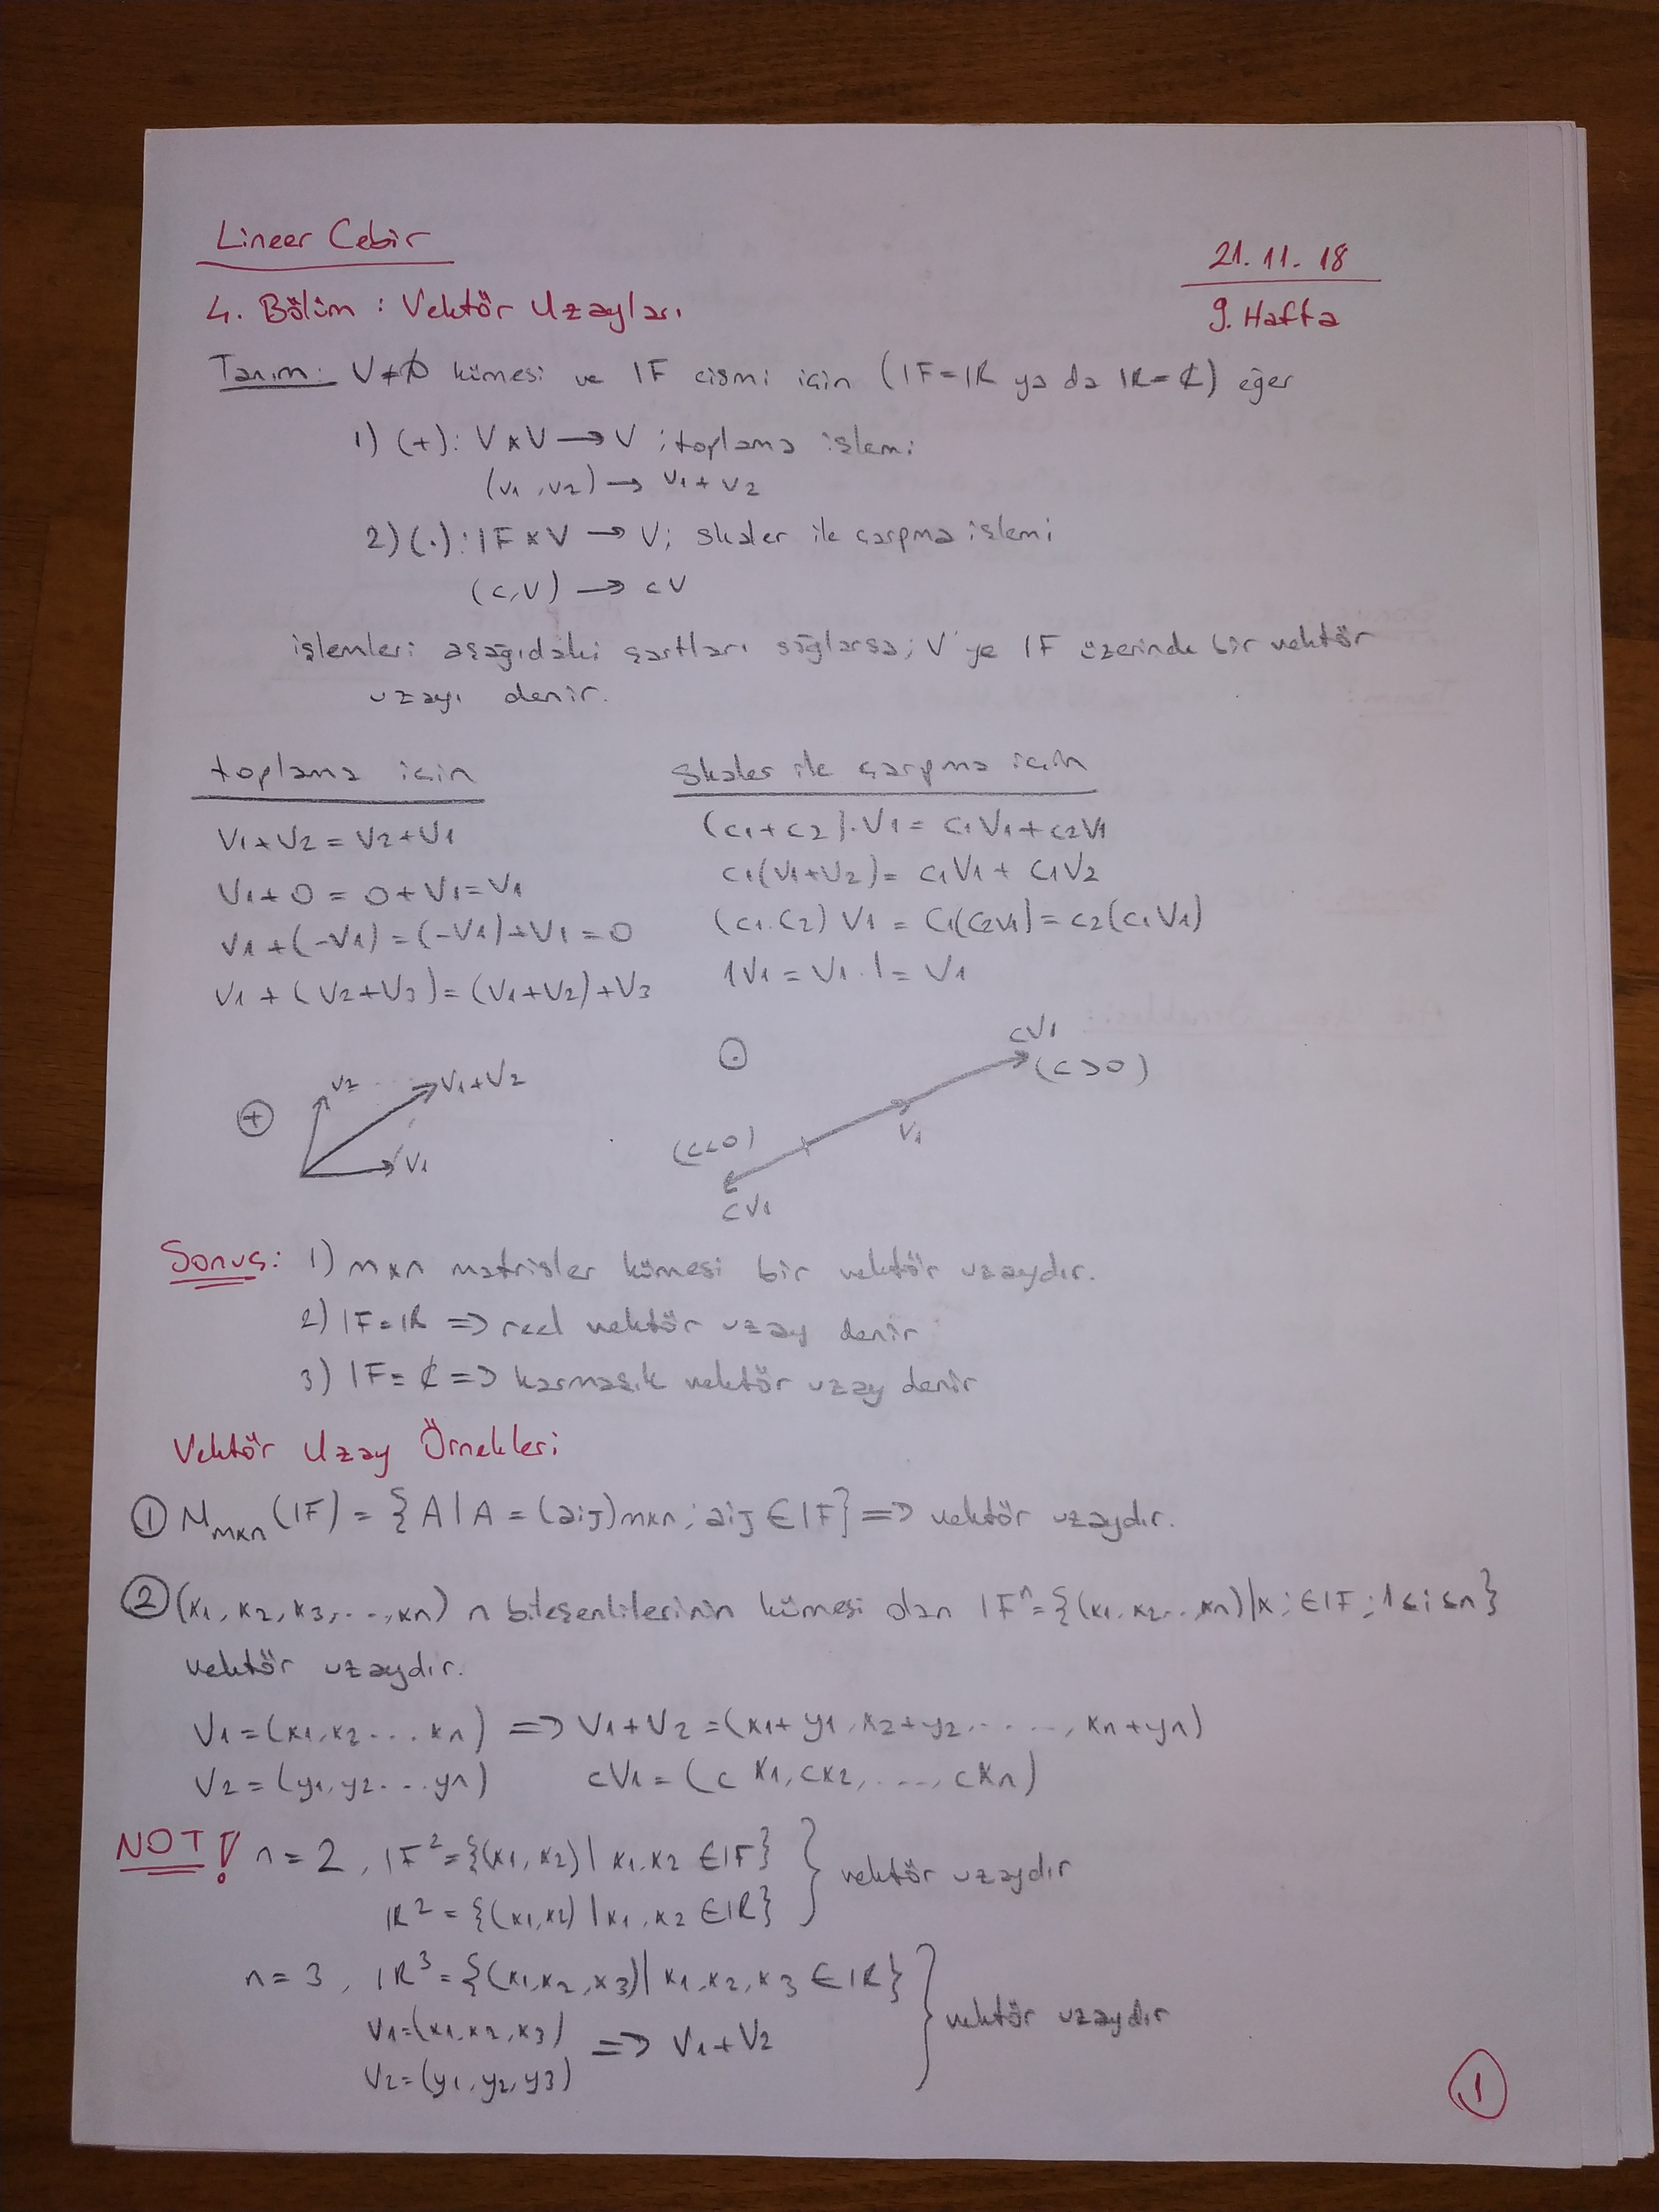 Lineer Cebir
21.11.18
4. Bölüm : Vektör Uzayları
9. Hafta
Tanım: V≠∅ kümesi ve IF cismi için (IF=IR ya da IR=ℂ) eğer
1) (+): VxV → V ; toplama işlemi
(v1, v2) → v1+v2
2) (.): IFxV → V; skaler ile çarpma işlemi
(c,v) → cv
işlemleri aşağıdaki şartları sağlarsa; V'ye IF üzerinde bir vektör
uzayı denir.
toplama için
V1+V2 = V2+V1
V1+0 = 0+V1 = V1
V1+(-V1) = (-V1)+V1 = 0
V1+(V2+V3) = (V1+V2)+V3
Skaler ile çarpma için
(c1+c2).V1 = c1V1 + c2V1
c1(V1+V2) = c1V1 + c1V2
(c1.c2)V1 = c1(c2V1) = c2(c1V1)
1V1 = V1.1 = V1
+
V2
V1+V2
V1
.
cV1
(c>0)
V1
(c<0)
cV1
Sonuç: 1) mxn matrisler kümesi bir vektör uzaydır.
2) IF=IR => reel vektör uzay denir
3) IF=ℂ => karmaşık vektör uzay denir
Vektör Uzay Örnekleri
① Mmxn(IF) = {A | A = (aij)mxn ; aij ∈ IF} => vektör uzaydır.
② (x1, x2, x3, ..., xn) n bileşenlilerinin kümesi dan IFⁿ = {(x1, x2...xn) | xi ∈ IF ; 1≤i≤n}
vektör uzaydır.
V1 = (x1, x2 ... xn) => V1+V2 = (x1+y1, x2+y2, ..., xn+yn)
V2 = (y1, y2 ... yn) cV1 = (cx1, cx2, ..., cxn)
NOT! n=2, IF² = {(x1, x2) | x1, x2 ∈ IF}
IR² = {(x1, x2) | x1, x2 ∈ IR} } vektör uzaydır
n=3, IR³ = {(x1, x2, x3) | x1, x2, x3 ∈ IR}
V1 = (x1, x2, x3)
V2 = (y1, y2, y3) => V1+V2 } vektör uzaydır
1